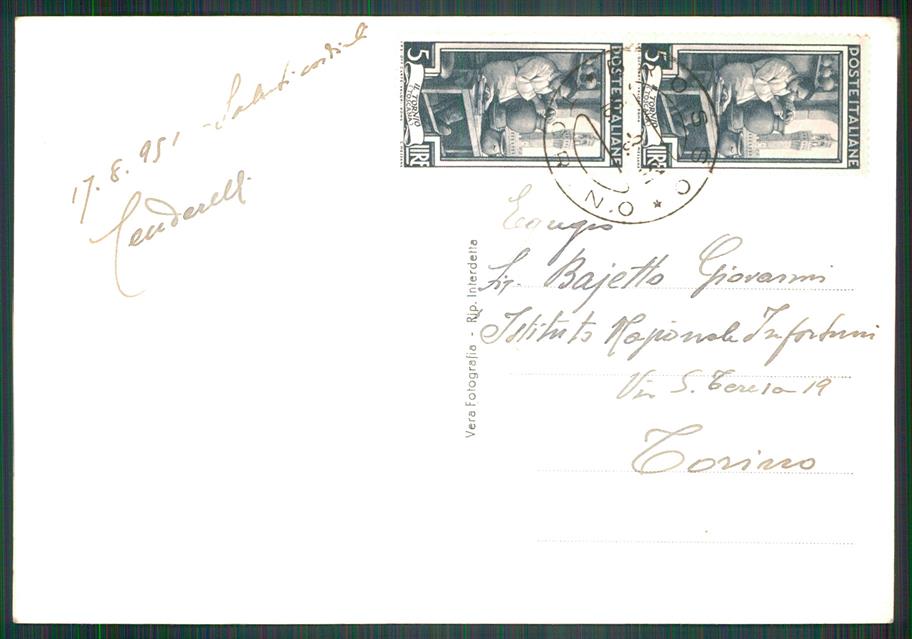 17.8.951 - Saluti cordiali
Cenderelli
5 LIRE
IL TORNIO
(TOSCANA)
POSTE ITALIANE
5 LIRE
IL TORNIO
(TOSCANA)
POSTE ITALIANE
Vera Fotografia - Rip. Interdetta
Sig. Bajetto Giovanni
Istituto Nazionale Infortuni
Via S. Teresa 19
Torino